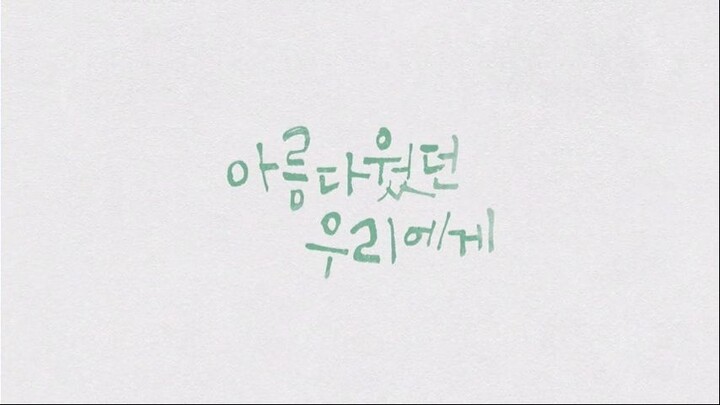 아름다웠던
우리에게